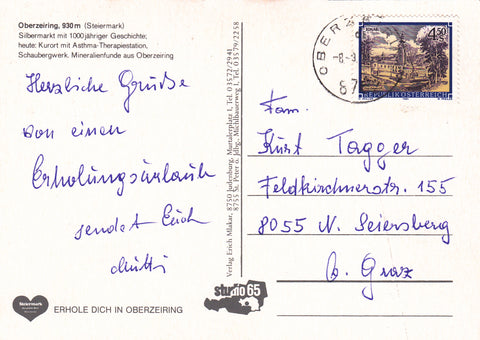 Oberzeiring, 930 m (Steiermark)
Silbermarkt mit 1000jähriger Geschichte;
heute: Kurort mit Asthma-Therapiestation,
Schaubergwerk. Mineralienfunde aus Oberzeiring
Herzliche Grüße
von einen
Erholungsurlaub
sendet Euch
Mutti
Steiermark
ERHOLE DICH IN OBERZEIRING
Verlag Erich Mlakar, 8750 Judenburg, Murtalerplatz 1, Tel. 0 35 72/29 41
8755 St. Peter o. Jdbg., Tel. 0 35 79/22 58
studio 65
OBERZ
-8.-9.
87
4.50
REPUBLIK ÖSTERREICH
Fam.
Kurt Tagger
Feldkirchnerstr. 155
8055 N. Seiersberg
b. Graz